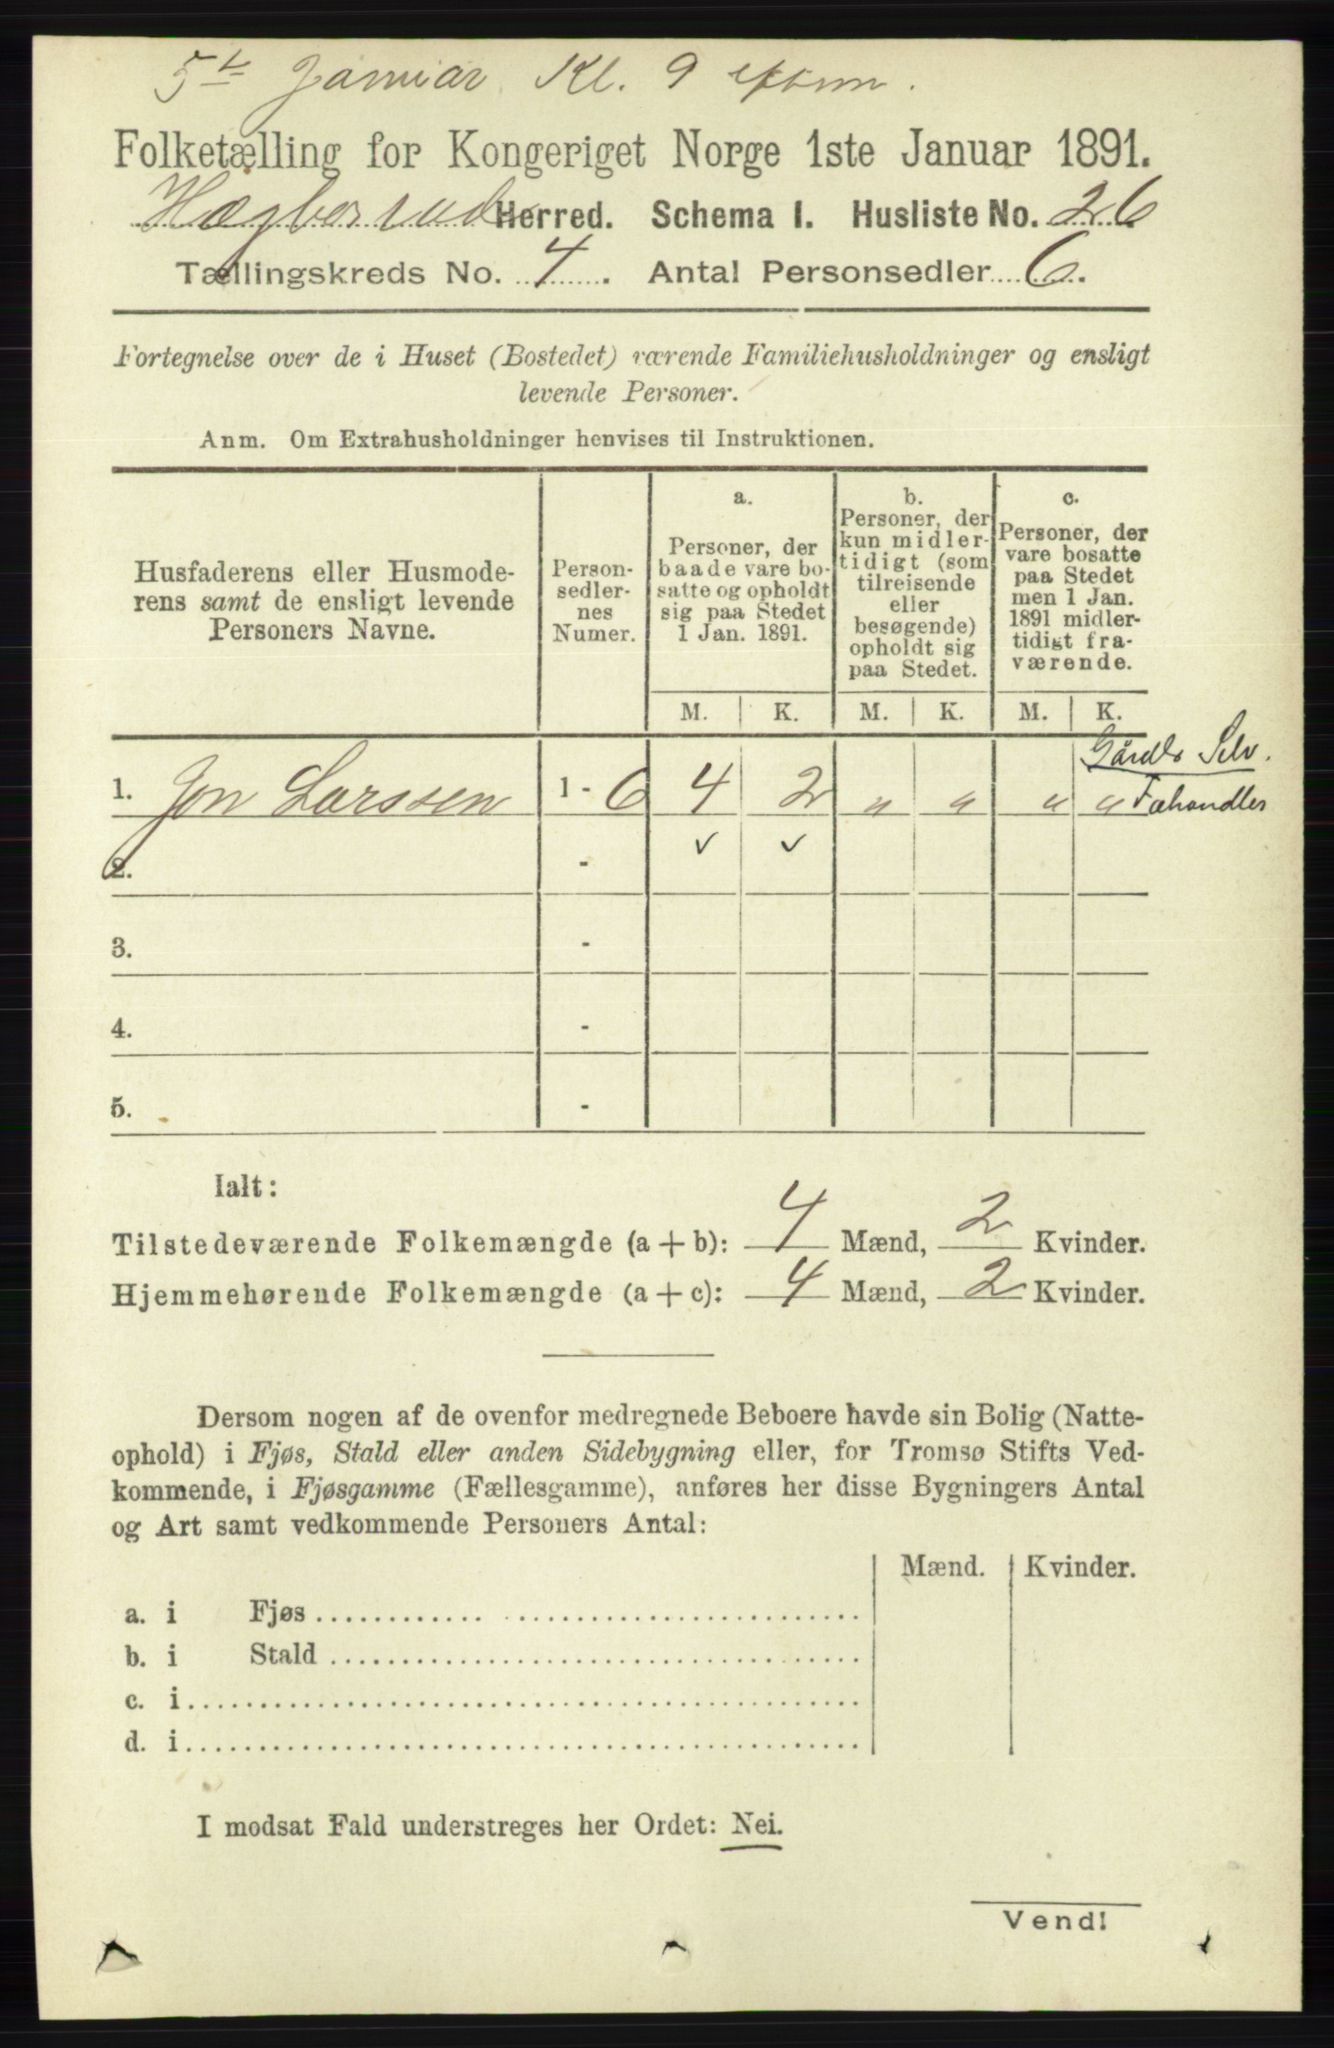 5te Januar Kl. 9 efterm.
Folketælling for Kongeriget Norge 1ste Januar 1891.
Hægbostad Herred. Schema I. Husliste No. 26
Tællingskreds No. 4. Antal Personsedler 6.
Fortegnelse over de i Huset (Bostedet) værende Familiehusholdninger og ensligt
levende Personer.
Anm. Om Extrahusholdninger henvises til Instruktionen.
Husfaderens eller Husmode-
rens samt de ensligt levende
Personers Navne.
Person-
sedler-
nes
Numer.
a.
Personer, der
baade vare bo-
satte og opholdt
sig paa Stedet
1 Jan. 1891.
b.
Personer, der
kun midler-
tidigt (som
tilreisende
eller
besøgende)
opholdt sig
paa Stedet.
c.
Personer, der
vare bosatte
paa Stedet
men 1 Jan.
1891 midler-
tidigt fra-
værende.
M. K. M. K. M. K.
Gårdbr Selv.
1. Jon Larssen 1 - 6 4 2 " " " " Fæhandler
2. - ✓ ✓
3. -
4. -
5. -
Ialt:
Tilstedeværende Folkemængde (a + b): 4 Mænd, 2 Kvinder.
Hjemmehørende Folkemængde (a + c): 4 Mænd, 2 Kvinder.
Dersom nogen af de ovenfor medregnede Beboere havde sin Bolig (Natte-
ophold) i Fjøs, Stald eller anden Sidebygning eller, for Tromsø Stifts Ved-
kommende, i Fjøsgamme (Fællesgamme), anføres her disse Bygningers Antal
og Art samt vedkommende Personers Antal:
Mænd. Kvinder.
a. i Fjøs
b. i Stald
c. i
d. i
I modsat Fald understreges her Ordet: Nei.
Vend!